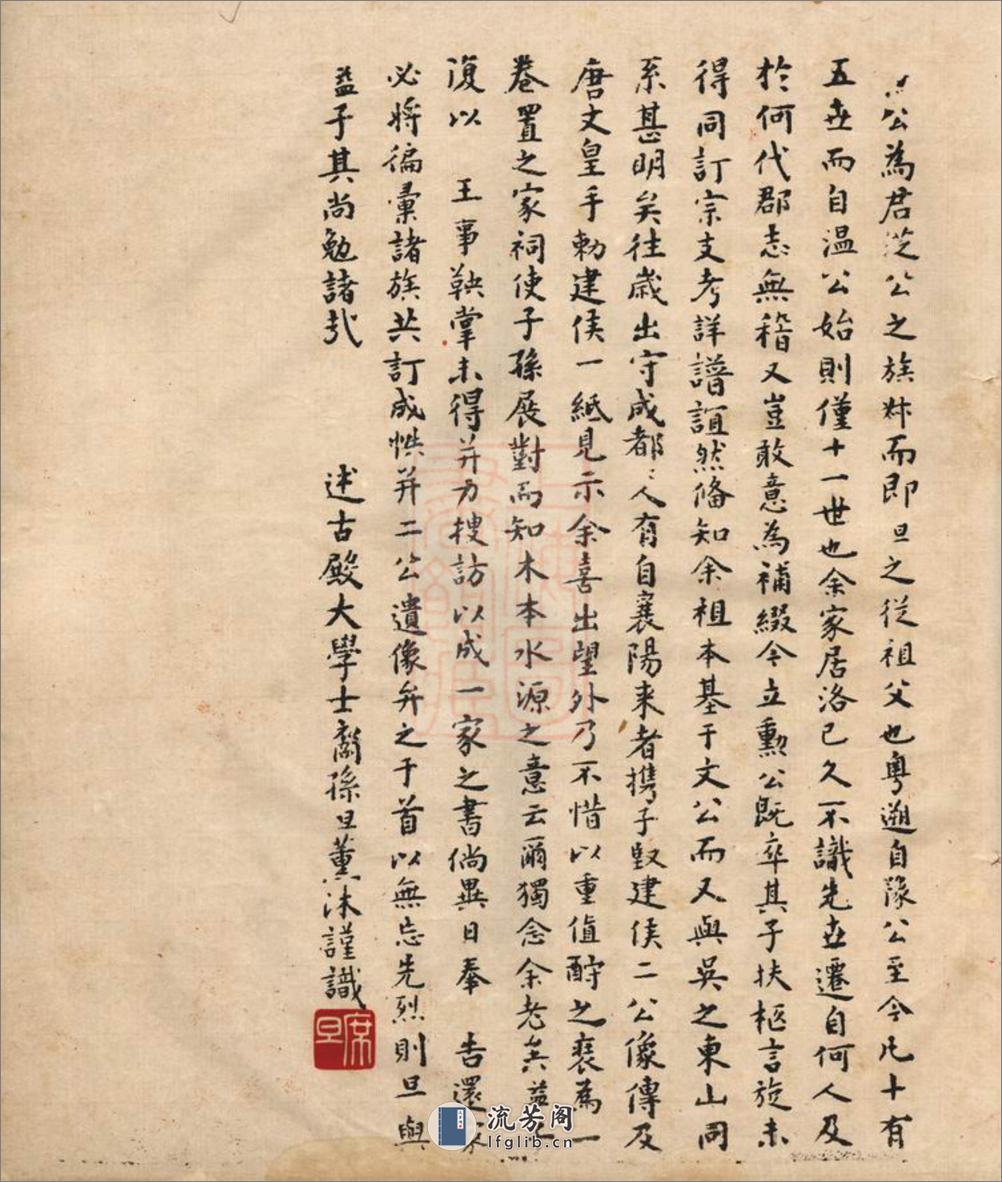 公為君從公之族叔而即旦之從祖父也粵遡自豫公至今凡十有
五世而自溫公始則僅十一世也余家居洛已久不識先世遷自何人及
於何代郡志無稽又豈敢意為補綴今立勳公既卒其子扶柩言旋未
得同訂宗支考詳譜誼然俻知余祖本基于文公而又與吳之東山同
系甚明矣往歲出守成都〻人有自襄陽来者携子竪建侯二公像傳及
唐文皇手勅建侯一紙見示余喜出望外乃不惜以重值酧之裝為一
卷置之家祠使子孫展對而知木本水源之意云爾獨念余老矣益
復以　王事鞅掌未得并力搜訪以成一家之書倘異日奉　告還
必將徧彙諸族共訂成帙并二公遺像弁之于首以無忘先烈則旦與
益子其尚勉諸哉　　述古殿大學士裔孫旦薰沐謹識
席旦
流芳阁
lfglib.cn